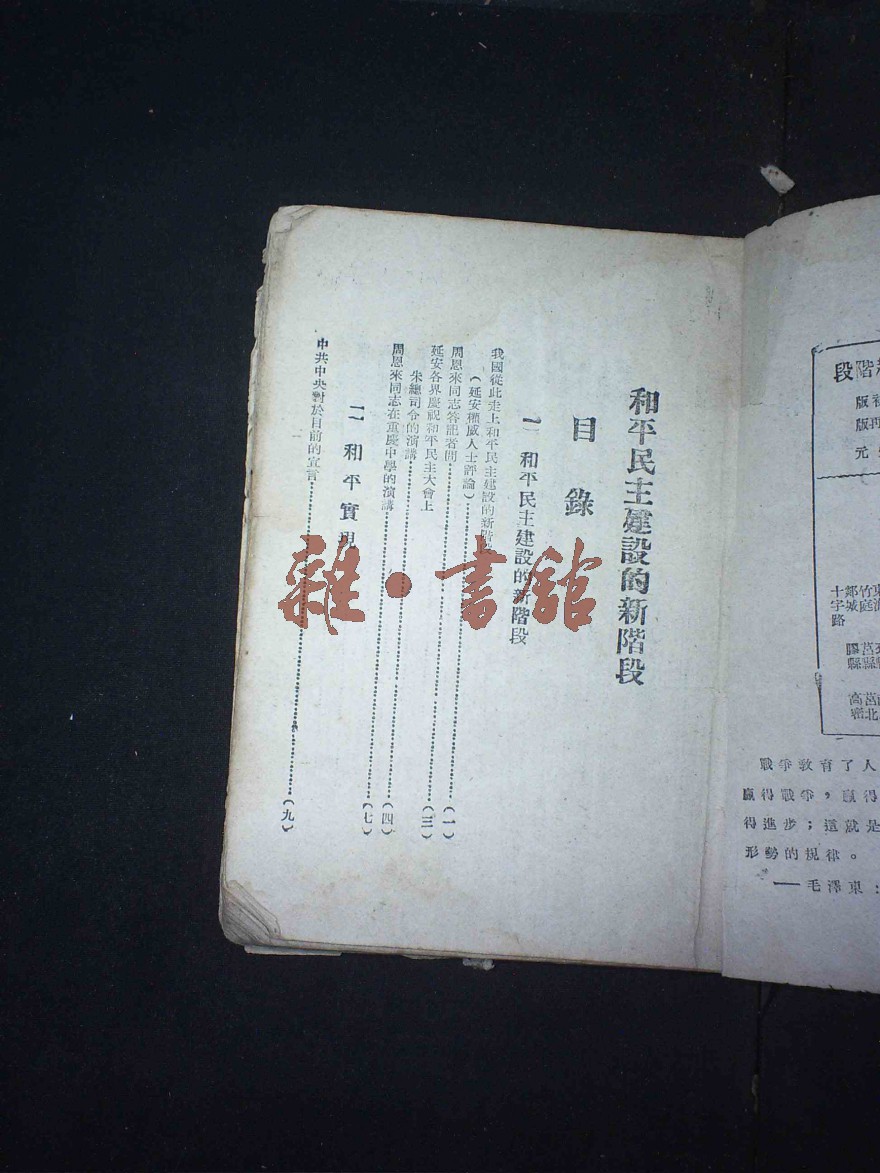 和平民主建設的新階段
目錄
一 和平民主建設的新階段
我國從此走上和平民主建設的新階
(延安權威人士評論)(一)
周恩來同志答記者問(三)
延安各界慶祝和平民主大會上
朱總司令的演講(四)
周恩來同志在重慶中學的演講(七)
二 和平實現
中共中央對於目前的宣言(九)
雜·書館
階段
版
再版
元
竹庭
郯城
十字路
莒縣
膠縣
莒北
高密
戰爭教育了人
贏得戰爭,贏得
得進步;這就是
形勢的規律。
——毛澤東: